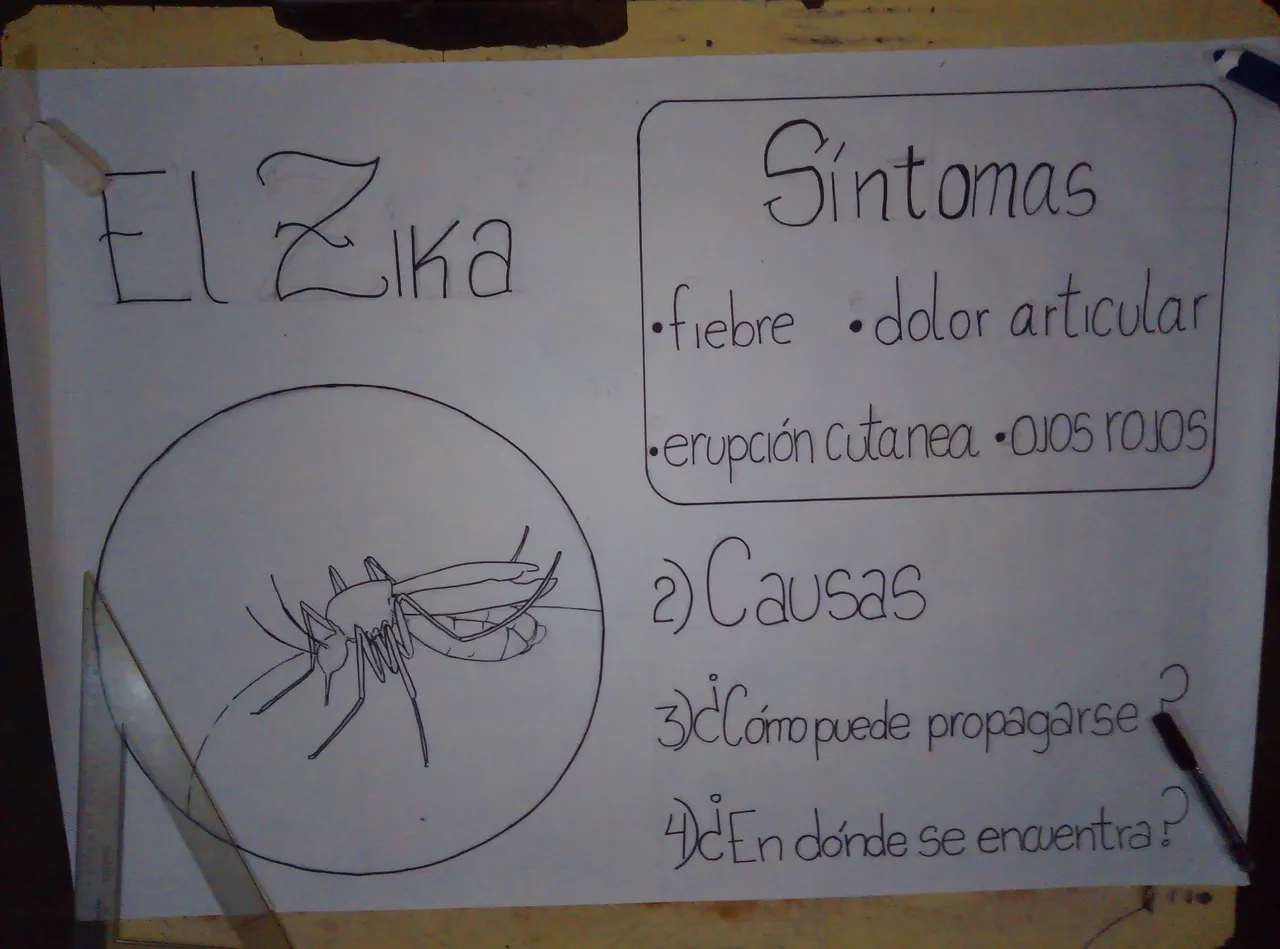 El Zika
Síntomas
•fiebre •dolor articular
•erupción cutanea •ojos rojos
2) Causas
3) ¿Cómo puede propagarse?
4) ¿En dónde se encuentra?